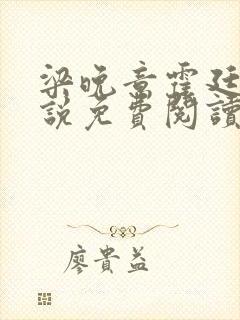 梁晚音霍廷
說免費閱讀
廖貴益